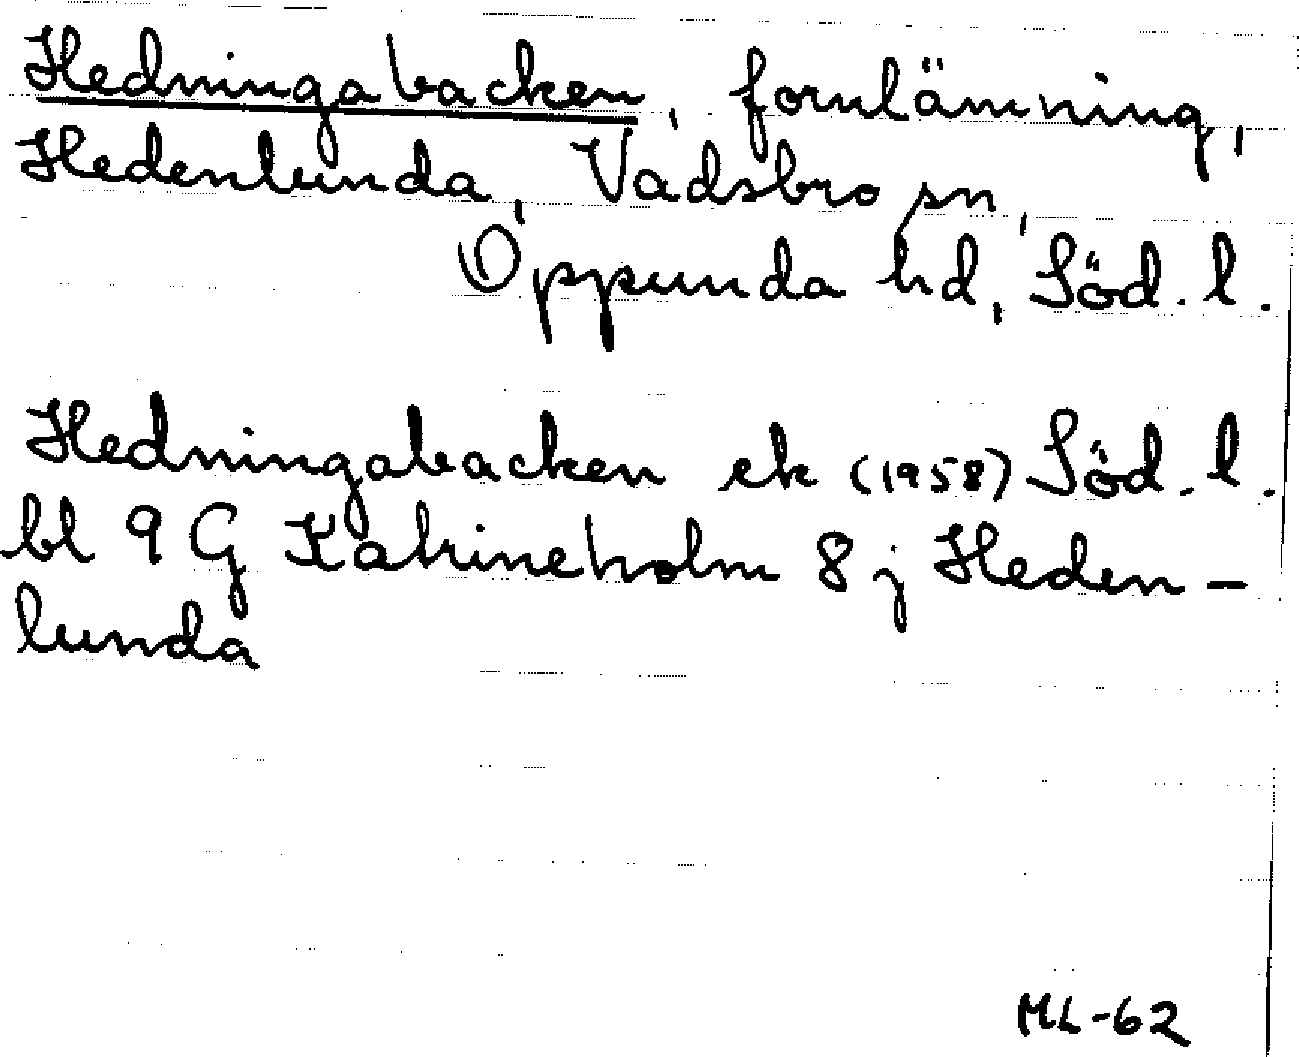 Hedningabacken, fornlämning,
Hedenlunda, Vadsbro sn,
Oppunda hd, Söd. l.
Hedningabacken ek (1958) Söd. l.
bl 9 G Katrineholm 8 j Heden-
lunda
ML-62